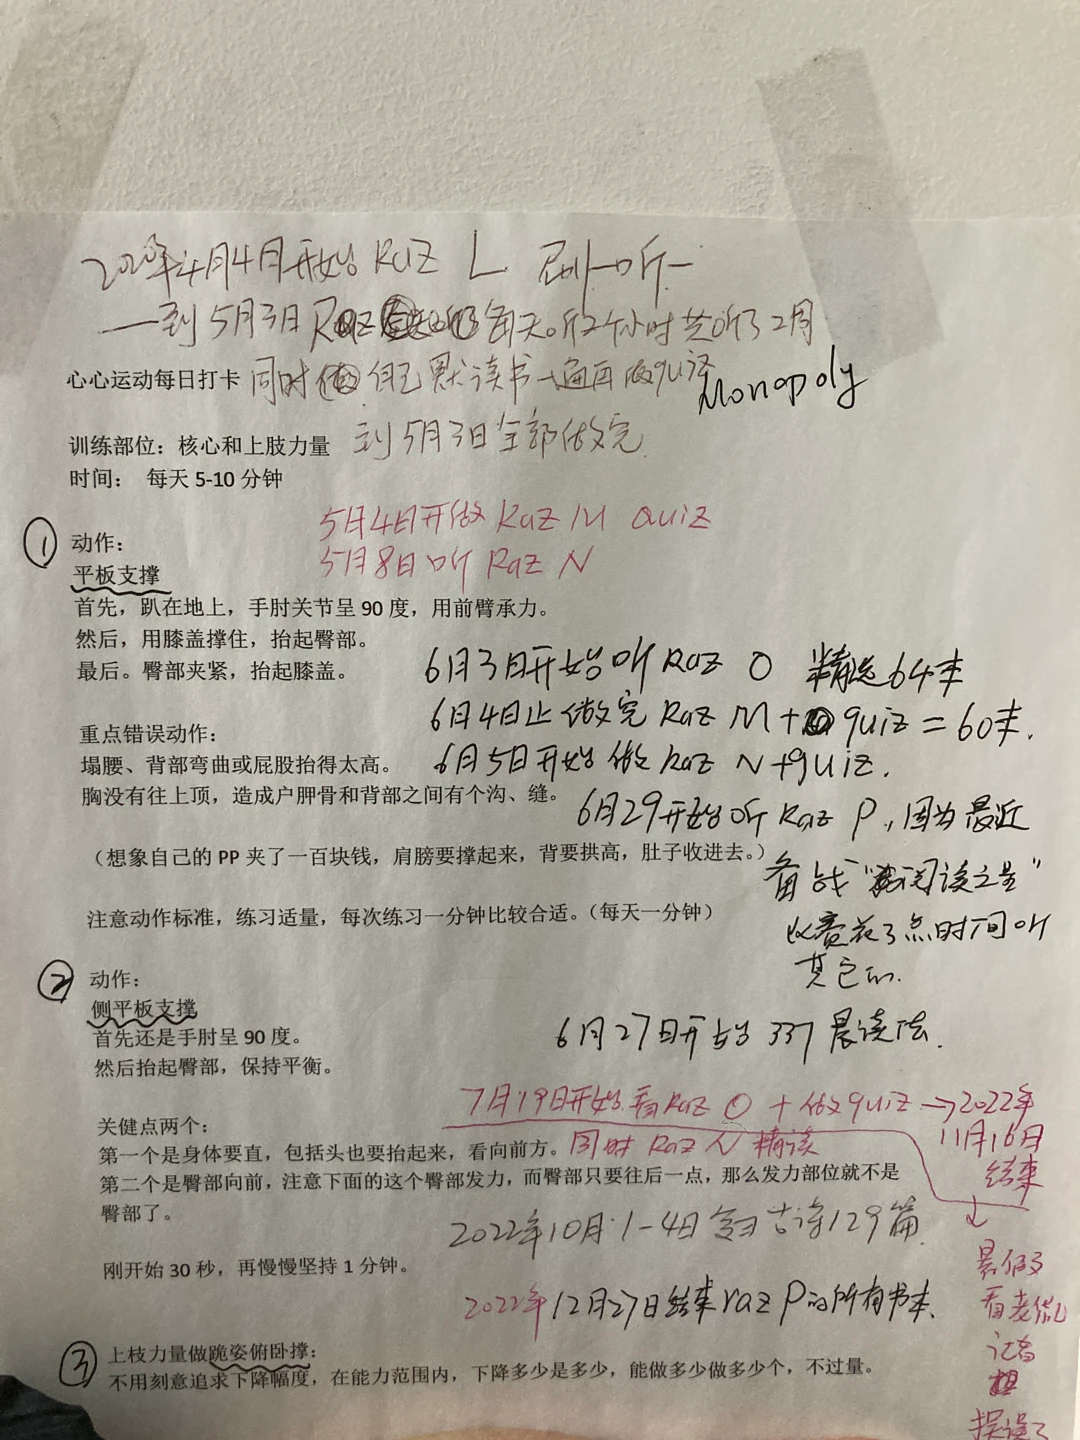 年4月4日开始 Raz L 听
—到5月3日 Raz 每天听2个小时共听了2月
心心运动每日打卡 同时 自己默读书一遍再做quiz
Monopoly
训练部位：核心和上肢力量 到5月3日全部做完
时间： 每天 5-10 分钟
5月4日开做 Raz M Quiz
① 动作：
5月8日听 Raz N
平板支撑
首先，趴在地上，手肘关节呈 90 度，用前臂承力。
然后，用膝盖撑住，抬起臀部。
最后。臀部夹紧，抬起膝盖。
6月3日开始听 Raz O 精选64本
6月4日止做完 Raz M+quiz=60本.
重点错误动作：
塌腰、背部弯曲或屁股抬得太高。
6月5日开始做 Raz N+quiz.
胸没有往上顶，造成户胛骨和背部之间有个沟、缝。
6月29开始听 Raz P，因为最近
（想象自己的 PP 夹了一百块钱，肩膀要撑起来，背要拱高，肚子收进去。）
备战“阅读之星”
注意动作标准，练习适量，每次练习一分钟比较合适。（每天一分钟）
比赛花了点时间听
其它的.
② 动作：
侧平板支撑
首先还是手肘呈 90 度。
6月27日开始 337 晨读法.
然后抬起臀部，保持平衡。
7月19日开始看Raz O + 做quiz →2022年
11月16日
结束
关健点两个：
第一个是身体要直，包括头也要抬起来，看向前方。 同时 Raz N 精读
第二个是臀部向前，注意下面的这个臀部发力，而臀部只要往后一点，那么发力部位就不是
臀部了。
2022年10月1-4日 复习古诗129篇
↓
暑假
看老鼠
记者
刚开始 30 秒，再慢慢坚持 1 分钟。
2022年12月27日结束 raz P的所有书本.
耽误了
③ 上枝力量做跪姿俯卧撑：
不用刻意追求下降幅度，在能力范围内，下降多少是多少，能做多少做多少个，不过量。